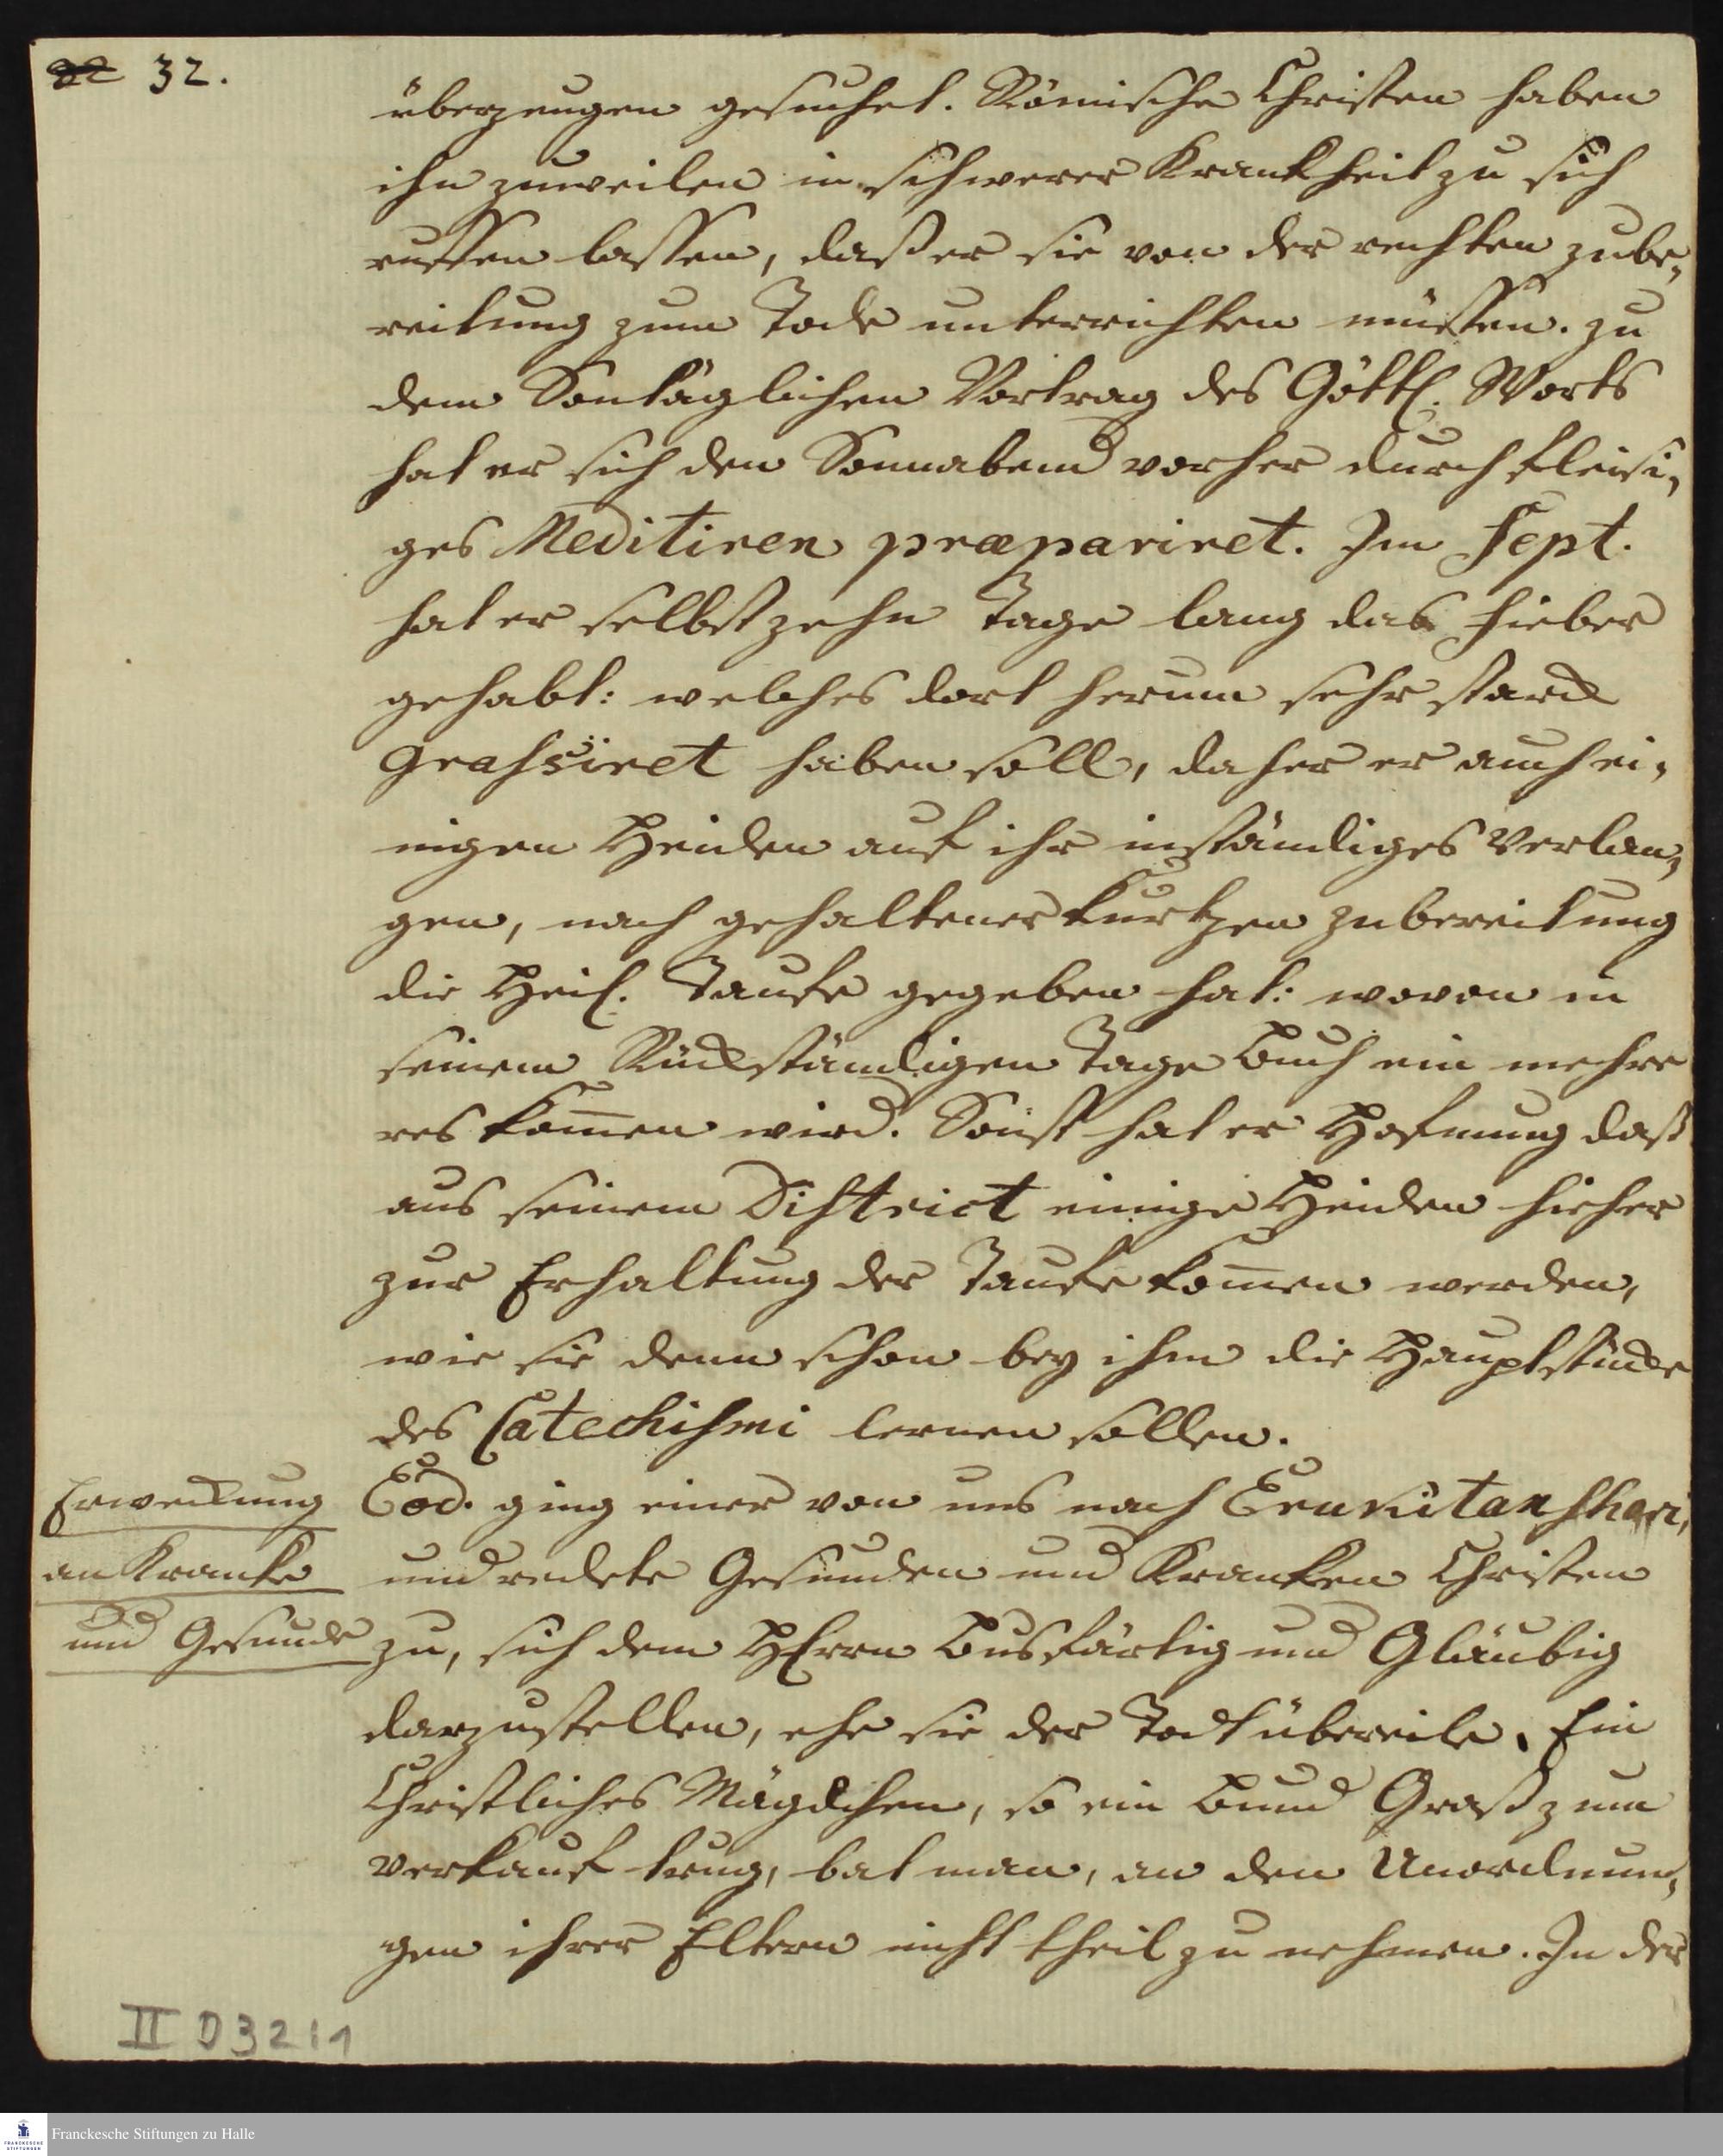 32.
überzeugen gesuchet. Römische Christen haben
ihn zuweilen in schwerer Kranckheit zu sich
ruffen lassen, daß er sie von der rechten zube-
reitung zum Tode unterrichten müssen. zu
dem Sontäglichen Vortrag des Göttl. Worts
hat er sich den Sonnabend vorher durch fleisi-
ges Meditiren præpariret. Im Sept.
hat er selbst zehn Tage lang das Fieber
gehabt: welches dort herum sehr starck
grassiret haben soll, daher er auch ei-
nigen Heiden auf ihr inständiges Verlan-
gen, nach gehaltener kurtzen zubereitung
die Heil. Taufe gegeben hat: wovon in
seinem Rückständigen Tage Buch ein mehre
res kom̄en wird. Sonst hat er Hofnung daß
aus seinem District einige Heiden hieher
zur Erhaltung der Taufe kom̄en werden,
wie sie denn schon bey ihm die Hauptstücke
des Catechismi lernen sollen.
Erweckung
an Krancke
und Gesunde
Eod. ging einer von uns nach Erukitanscheri,
und redete Gesunden und Krancken Christen
zu, sich dem HErrn Busfärtig und Gläubig
darzustellen, ehe sie der Todt übereile. Ein
Christliches Mägdchen, so ein Bund Graß zum
Verkauf trug, bat man, an den Unordnun-
gen ihrer Eltern nicht theil zu nehmen. In der
II D 32:1
Franckesche Stiftungen zu Halle
FRANCKESCHE
STIFTUNGEN